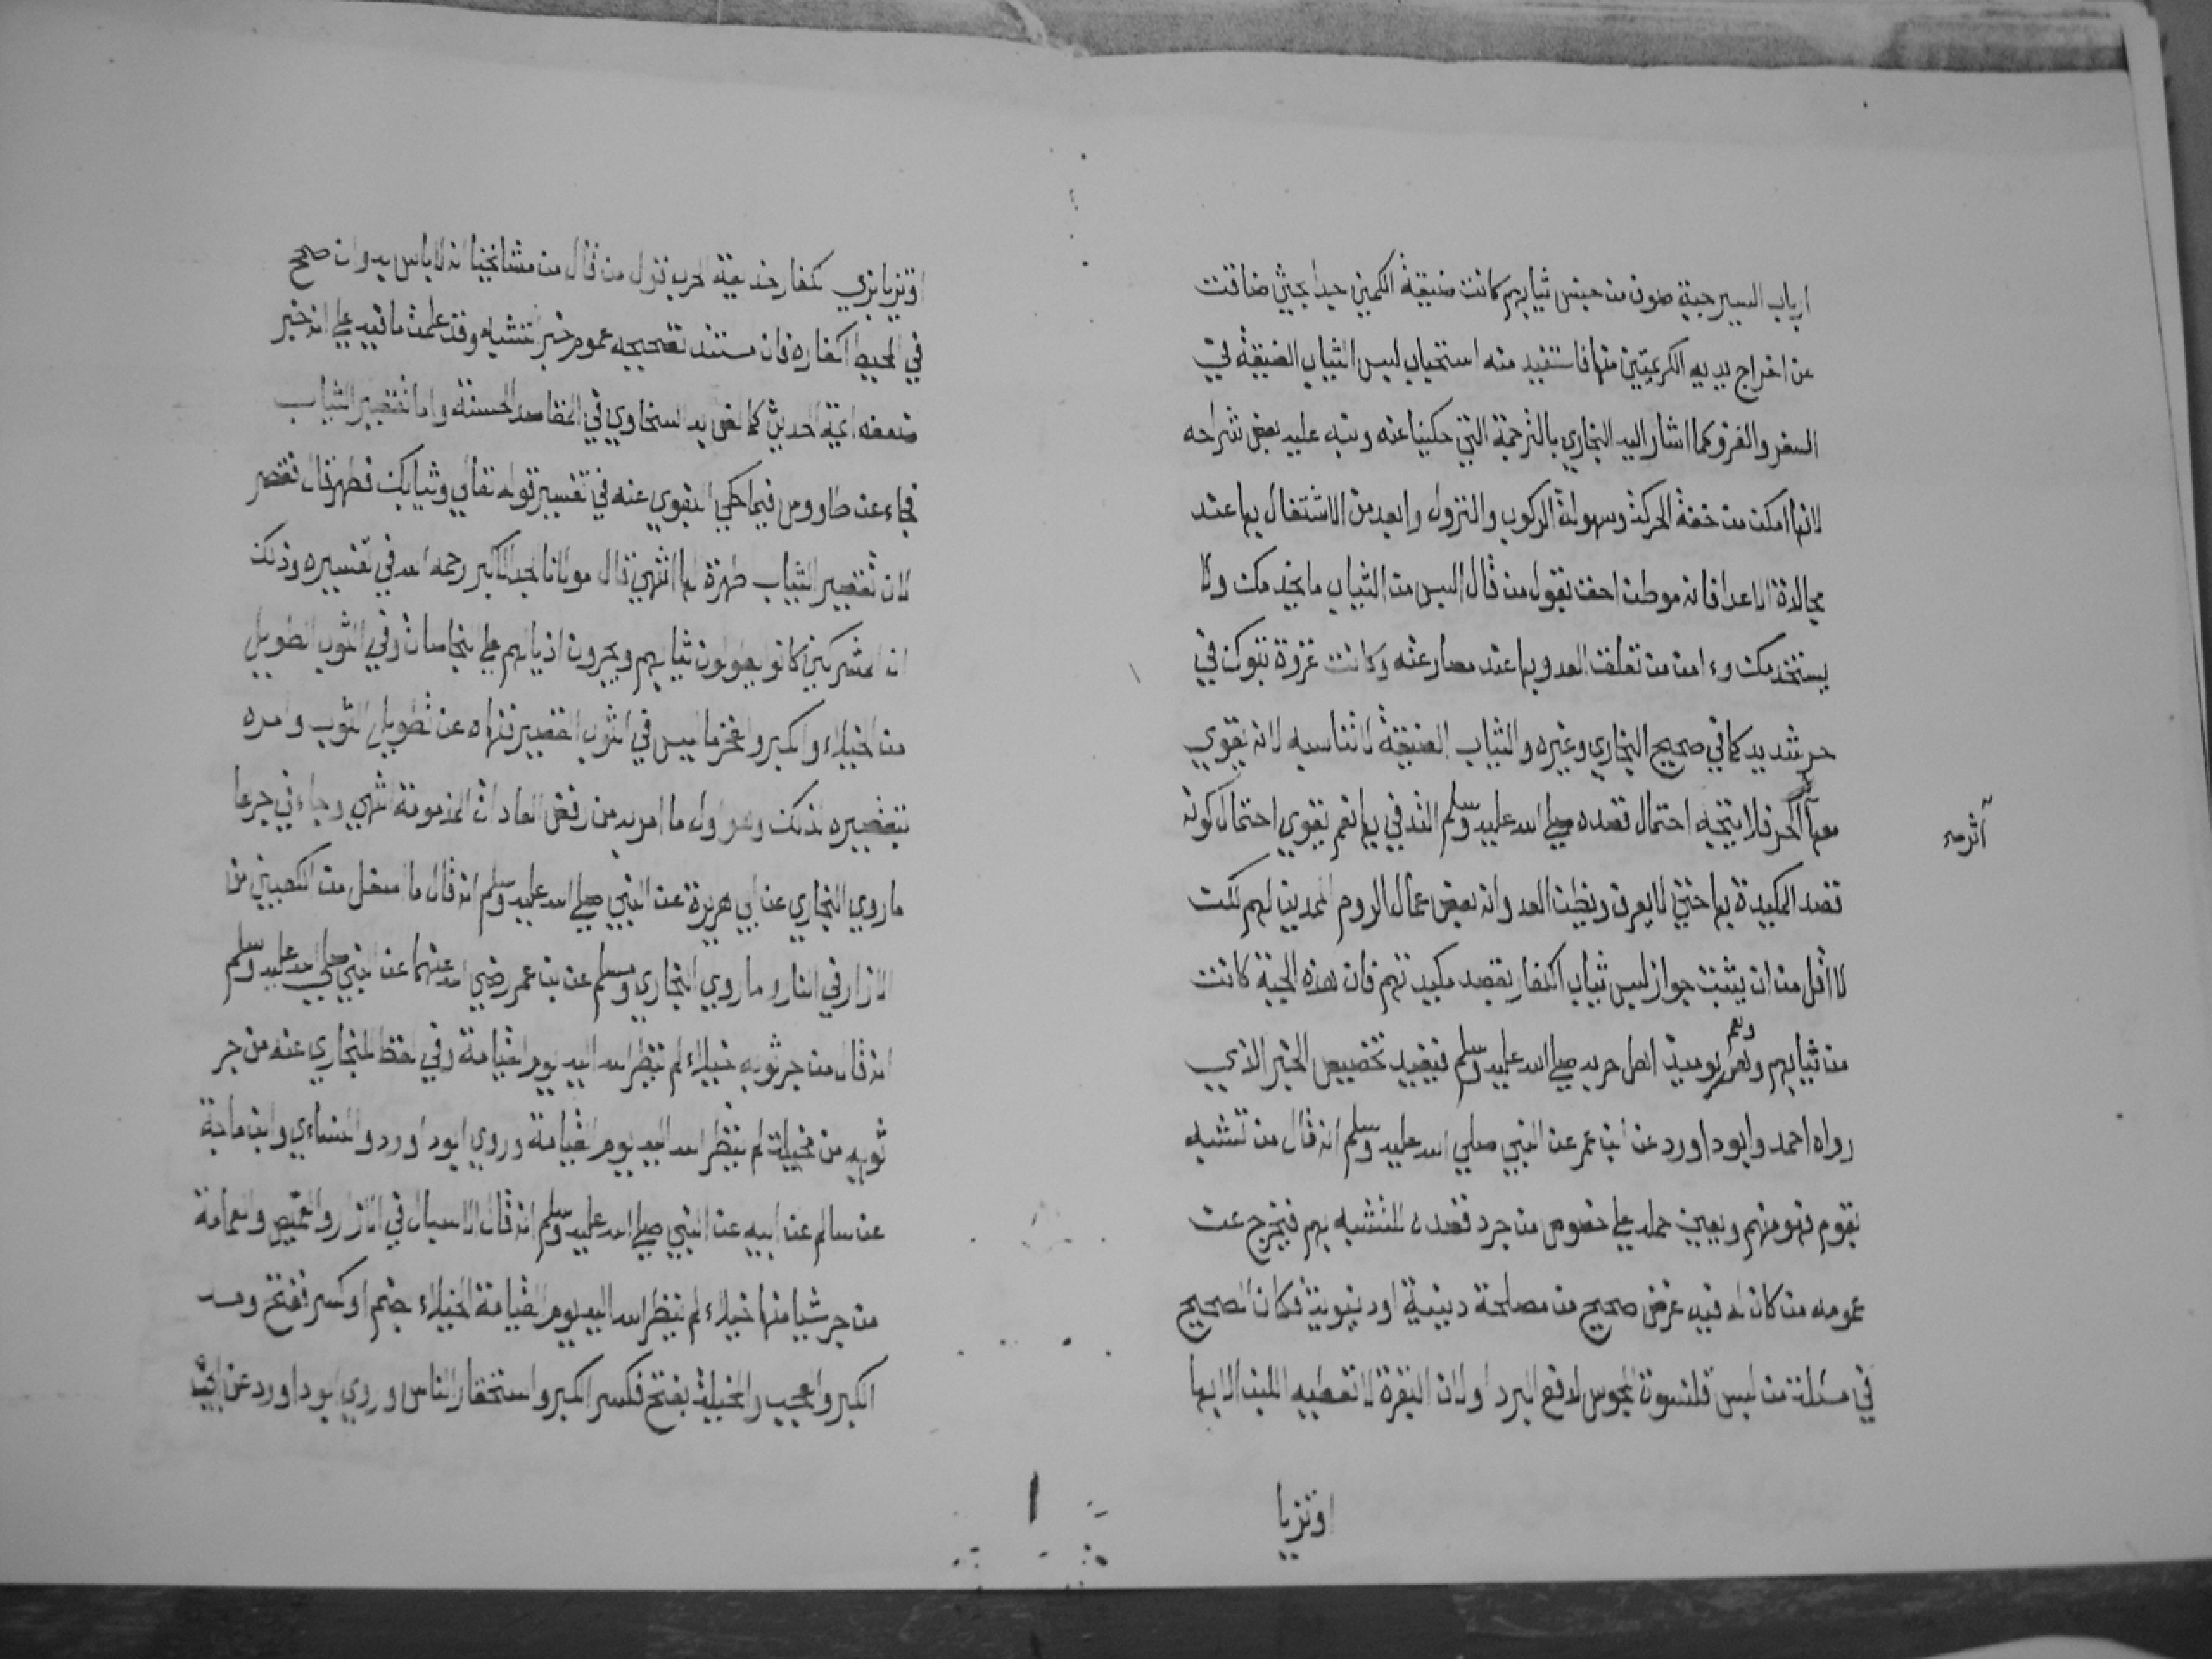 ارباب السير جبة صوف من جنس ثيابهم كانت ضيقة الكمين جدا بحيث ضاقت
عن اخراج يديه الكرعتين منها فاستفيد منه استحباب لبس الثياب الضيقة في
السفر والغزو كما اشار اليه البخاري بالترجمة التي حكينا عنه ونبه عليه بعض شراحه
لانها امكن من خفة الحركة وسهولة الركوب والنزول وابعد من الاشتغال بها عند
مجالدة الاعدا فانه موطن احق بقول من قال البس من الثياب ما يخدمك ولا
يستخدمك وءامن من تعلق العدو بها عند مصارعته وكانت غزوة تبوك في
حر شديد كما في صحيح البخاري وغيره والثياب الضيقة لا تناسبه لانه يقوي
معها الحر فلا يتجه احتمال قصده صلى الله عليه وسلم التدفي بها نعم يقوي احتمال كونه
اثر
قصد المكيدة بها حتى لا يعرف ويظن العدو انه بعض عمال الروم المدين لهم لكن
لا اقل من ان يثبت جواز لبس ثياب الكفار بقصد مكيدتهم فان هذه الجبة كانت
من ثيابهم وهم يوميذ اهل حربه صلى الله عليه وسلم فيفيد تخصيص الخبر الذي
وهم
رواه احمد وابو داوود عن ابن عمر عن النبي صلى الله عليه وسلم انه قال من تشبه
بقوم فهو منهم ويعين حمله على خصوص من جرد قصده للتشبه بهم فيخرج عن
عمومه من كان له فيه غرض صحيح من مصلحة دينية او دنيوية فكان الصحيح
في مسئلة من لبس قلنسوة المجوس لدفع البرد اولان البقرة لا تعطيه اللبن الا بها
اوتزيا
اوتزيا بزي الكفار خديعة الحرب قول من قال من مشائخنا انه لا باس به وان صحح
في المحيط اكفاره فان مستند تصحيحه عموم خبر التشبه وقد علمت ما فيه على انه خبر
ضعفه ائمة الحديث كما نص به السخاوي في المقاصد الحسنة واما تقصير الثياب
فجاء عن طاووس فيما حكى البغوي عنه في تفسير قوله تعالى وثيابك فطهر قال فقصر
لان تقصير الثياب طهرة لها انتهي قال مولانا جد الاكبر رحمه الله في تفسيره وذلك
ان المشركين كانو يطولون ثيابهم ويجرون اذيالهم على النجاسات وفي الثوب الطويل
من الخيلاء والكبر والفخر ما ليس في الثوب القصير فنهاه عن تطويل الثوب وامره
بتقصيره لذلك وهو اول ما امر به من رفض العادات المذمومة انتهي وجاء في جرها
ما روي البخاري عن ابي هريرة عن النبي صلى الله عليه وسلم انه قال ما اسفل من الكعبين من
الازار في النار وما روي البخاري ومسلم عن بن عمر رضي الله عنهما عن النبي صلى الله عليه وسلم
انه قال من جر ثوبه خيلاء لم ينظر الله اليه يوم القيامة وفي لفظ للبخاري عنه من جر
ثوبه من مخيلة لم ينظر الله اليه يوم القيامة وروي ابو داوود والنساءي وابن ماجة
عن سالم عن ابيه عن النبي صلى الله عليه وسلم انه قال الاسبال في الازار والقميص والعمامة
من جر شيا منها خيلاء لم ينظر الله اليه يوم القيامة الخيلاء بضم او كسر ففتح ومد
الكبر والعجب والمخيلة بفتح فكسر الكبر واستحقار الناس وروي ابو داوود عن